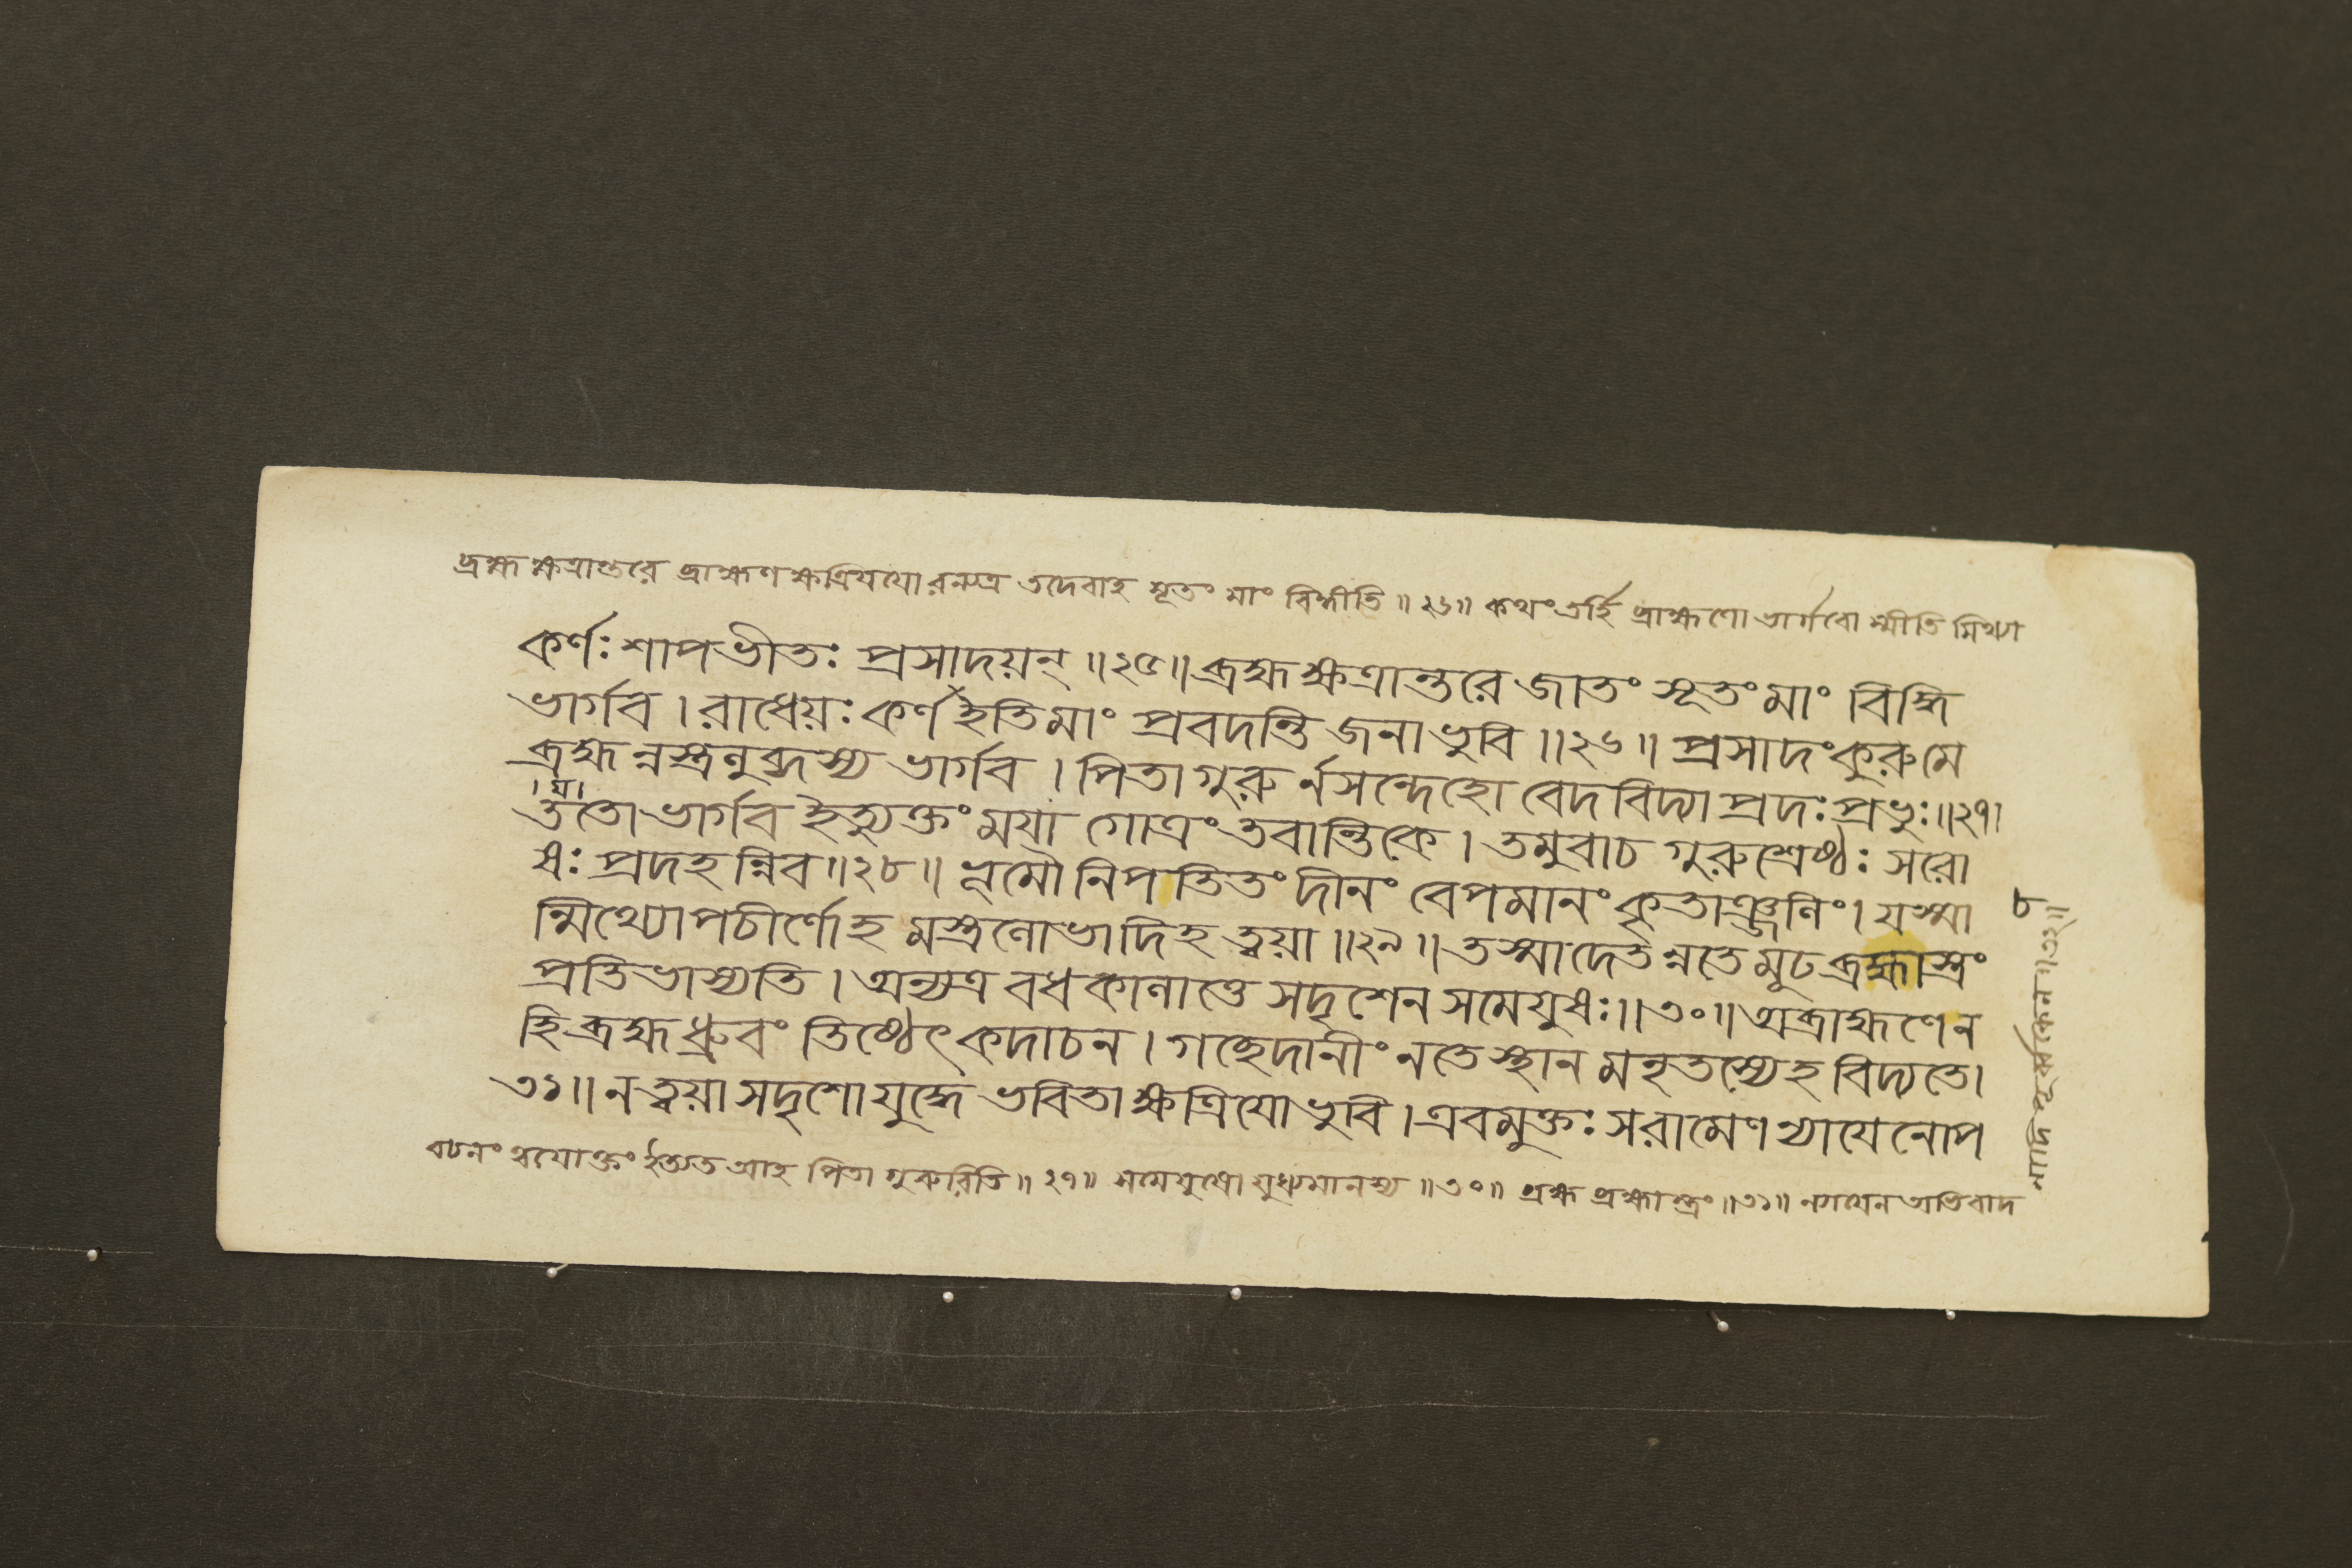 ব্রহ্মক্ষত্রান্তরে ব্রাহ্মণক্ষত্রিযযোরন্যত্র তদেবাহ সূতং মাং বিদ্ধীতি ॥ ২৬॥ কথং তর্হি ব্রাহ্মণো ভার্গবোস্মীতি মিথ্যা
কর্ণঃ শাপভীতঃ প্রসাদয়ন্ ॥২৫॥ ব্রহ্মক্ষত্রান্তরে জাতং সূতং মাং বিদ্ধি
ভার্গব । রাধেয়ঃ কর্ণ ইতি মাং প্রবদন্তি জনা ভুবি ॥২৬॥ প্রসাদং কুরু মে
ব্রহ্মন্নস্ত্রলুব্ধস্য ভার্গব । পিতা গুরুর্নসন্দেহো বেদবিদ্যাপ্রদঃ প্রভুঃ॥২৭।
।ম।
ততো ভার্গব ইত্যুক্তং ময়া গোত্রং তবান্তিকে । তমুবাচ গুরুশ্রেষ্ঠঃ সরো
ষঃ প্রদহন্নিব॥২৮॥ ভূমৌ নিপতিতং দীনং বেপমানং কৃতাঞ্জলিং । যস্মা
ন্মিথ্যোপচীর্ণোহমস্ত্রলোভাদিহ ত্বয়া ॥২৯॥ তস্মাদেতন্নতে মূঢ ব্রহ্মাস্ত্রং
প্রতিভাস্যতি । অন্যত্র বধকালাত্তে সদৃশেন সমেযুষঃ॥৩০॥ অব্রাহ্মণেন
হি ব্রহ্ম ধ্রুবং তিষ্ঠেৎ কদাচন । গচ্ছেদানীং নতে স্থানমনৃতস্যেহ বিদ্যতে।
৩১॥ ন ত্বয়া সদৃশো যুদ্ধে ভবিতা ক্ষত্রিযো ভুবি । এবমুক্তঃ স রামেণ ন্যাযেনোপ
বচনং ত্বযোক্তং ইত্যত আহ পিতা গুরুরিতি ॥ ২৭॥ সমেযুষো যুধ্যমানস্য ॥৩০॥ ব্রহ্ম ব্রহ্মাস্ত্রং ॥৩১॥ ন্যাযেন অভিবাদ
নাদি পূর্ব্বকেন ॥৩২॥
৮